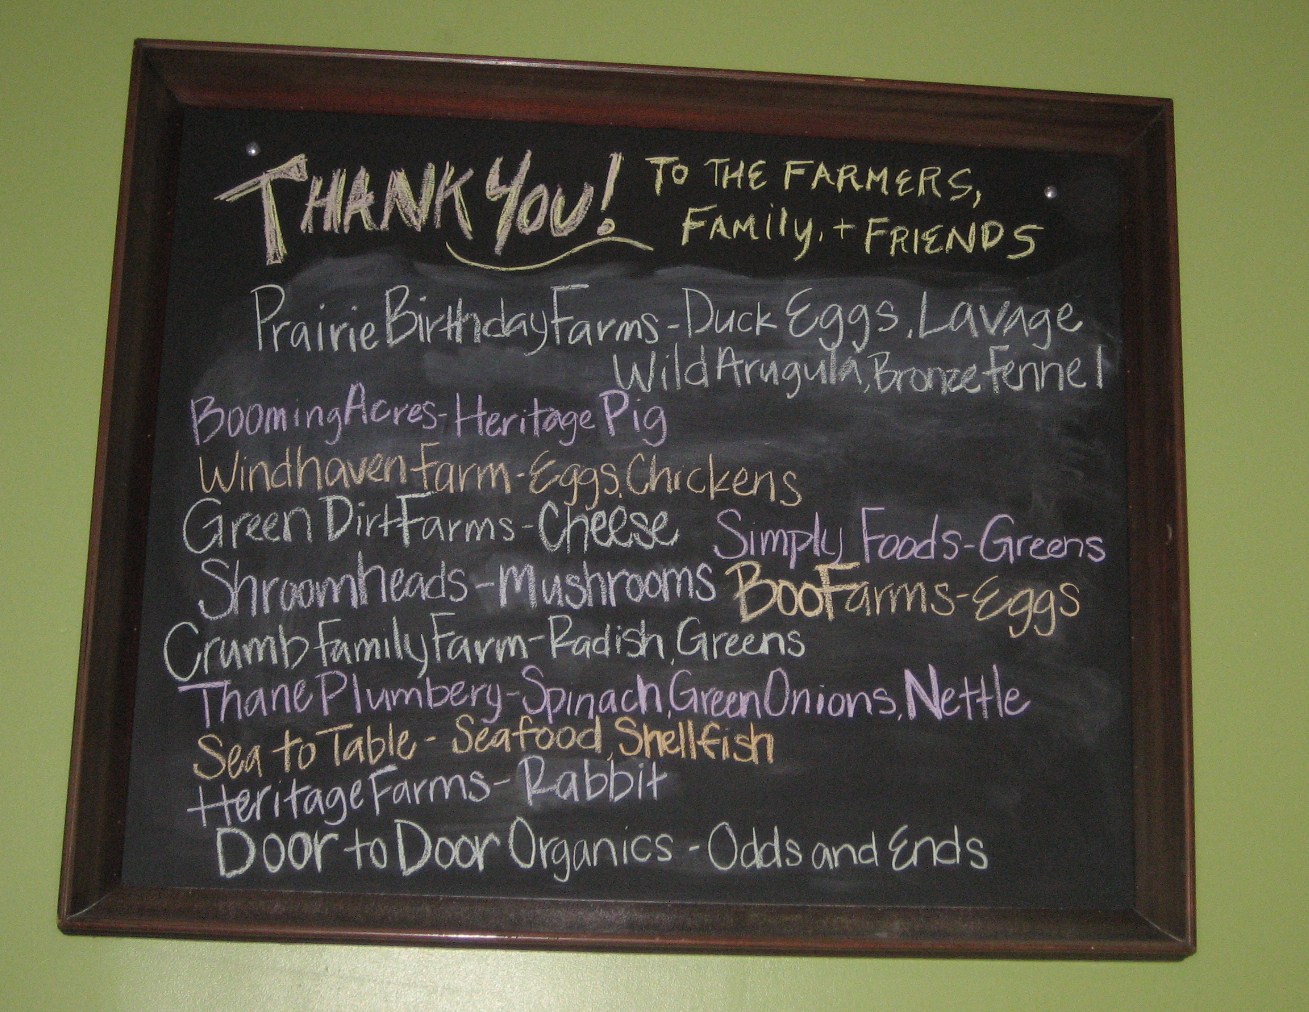 THANK YOU! TO THE FARMERS,
FAMily, + FRIENDS
Prairie Birthday Farms - Duck Eggs, Lavage
Wild Arugula, Bronze Fennel
Booming Acres - Heritage Pig
Windhaven Farm - Eggs, Chickens
Green Dirt Farms - Cheese
Simply Foods - Greens
Shroomheads - Mushrooms
Boo Farms - Eggs
Crumb Family Farm - Radish, Greens
Thane Plumbery - Spinach, Green Onions, Nettle
Sea to Table - Seafood, Shellfish
Heritage Farms - Rabbit
Door to Door Organics - Odds and Ends